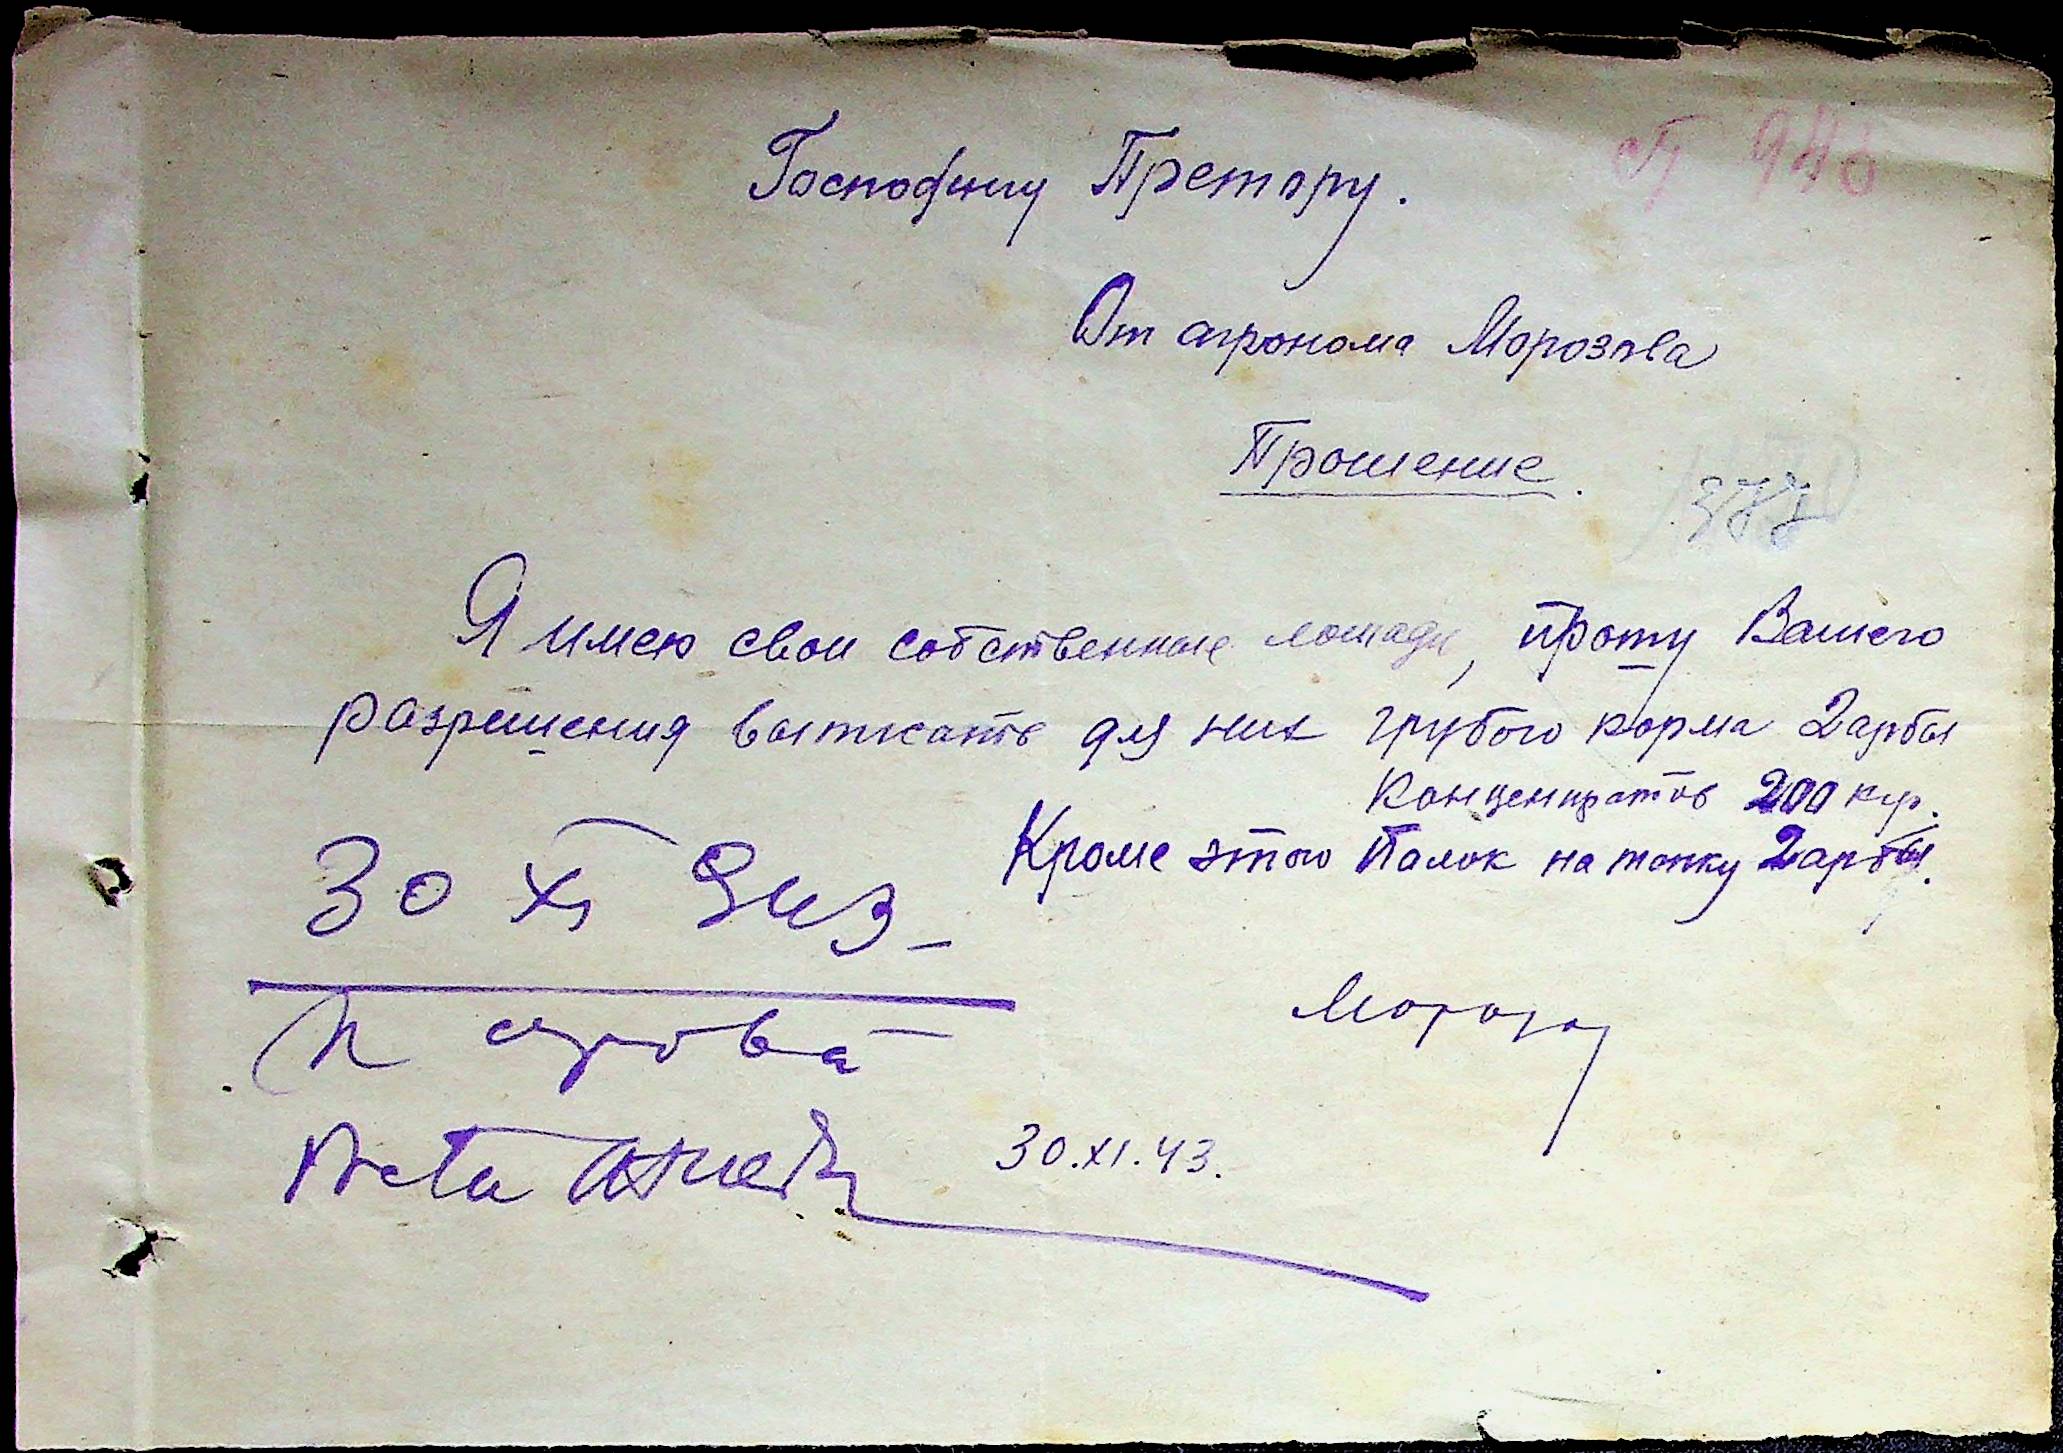 Господину Претору.
От агронома Морозова
Прошение.
377
Я имею свои собственные лошади, прошу Вашего
разрешения выписать для них грубого корма 2 арбы
Концентратов 200 кгр.
Кроме этого Палок на топку 2 арбы.
30 XI 943
Морозов
30.XI.43.